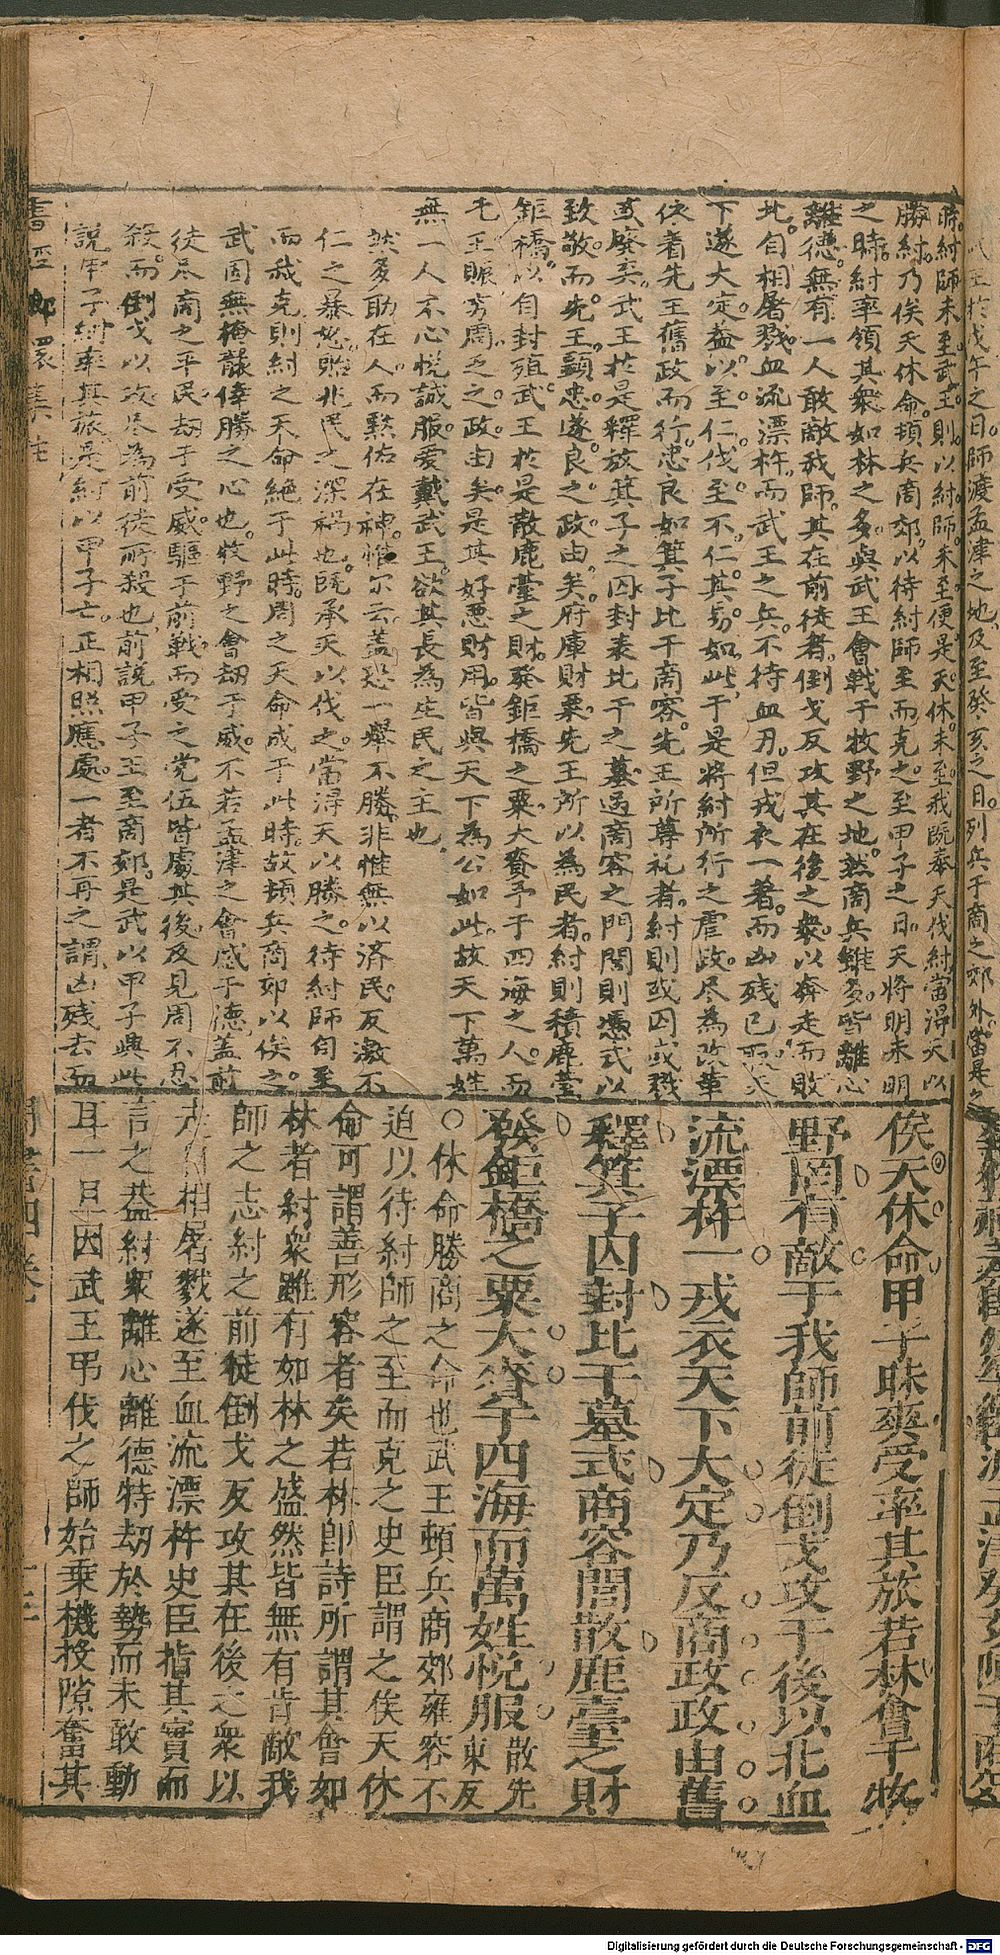 武王於戊午之日師渡孟津之地及至癸亥之日列兵于商之郊外當是之
時紂師未至武王則以紂師未至便是天休未至我既奉天伐紂當得天以
勝紂乃俟天休命頓兵商郊以待紂師至而克之至甲子之日天將明未明
之時紂率領其衆如林之多與武王會戰于牧野之地然商兵雖多皆離心
離德無有一人敢敵我師其在前徒者倒戈反攻其在後之衆以奔走而敗
北自相屠戮血流漂杵而武王之兵不待血刃但戎衣一著而凶残已天
下遂大定葢以至仁伐至不仁其易如此于是將紂所行之虐政尽為改革
依着先王舊政而行忠良如箕子比干商容先王所尊礼者紂則或囚或戮
或廢弃武王於是釋放箕子之囚封表比干之墓過商容之門閭則憑式以
致敬而先王顕忠遂良之政由矣府庫財粟先王所以為民者紂則積鹿臺
鉅橋以自封殖武王於是散鹿臺之財發鉅橋之粟大賚予于四海之人而
先王賑窮周乏之政由矣是其好惡財用皆與天下為公如此故天下萬姓
無一人不心悦誠服爱戴武王欲其長為生民之主也
然多助在人而黙佑在神惟尓云蓋恐一舉不勝非惟無以済民反激不
仁之暴怒貽兆民之深禍也既承天以伐之當得天以勝之待紂師自至
而我克則紂之天命絶于此時周之天命成于此時故頓兵商郊以俟之
武固無掩襲倖勝之心也牧野之會劫于威不若孟津之會感于德蓋前
徒尽商之平民劫于受威驅于前戰而受之党伍皆處其後及見周不忍
殺而倒戈以攻尽為前徒所殺也前説甲子王至商郊是武以甲子興此
説甲子紂率其旅是紂以甲子亡正相照應處一者不再之謂凶残去而
書經集註
俟天休命甲子昧爽受率其旅若林會于牧
野罔有敵于我師前徒倒戈攻于後以北血
流漂杵一戎衣天下大定乃反商政政由舊
釋箕子囚封比干墓式商容閭散鹿臺之財
發鉅橋之粟大賚于四海而萬姓悦服散先
東反
○休命勝商之命也武王頓兵商郊雍容不
迫以待紂師之至而克之史臣謂之俟天休
命可謂善形容者矣若林即詩所謂其會如
林者紂衆雖有如林之盛然皆無有肯敵我
師之志紂之前徒倒戈反攻其在後之衆以
走自相屠戮遂至血流漂杵史臣指其實而
言之葢紂衆離心離德特劫於勢而未敢動
耳一旦因武王弔伐之師始乗機投隙奮其
周書四卷
Digitalisierung gefördert durch die Deutsche Forschungsgemeinschaft - DFG